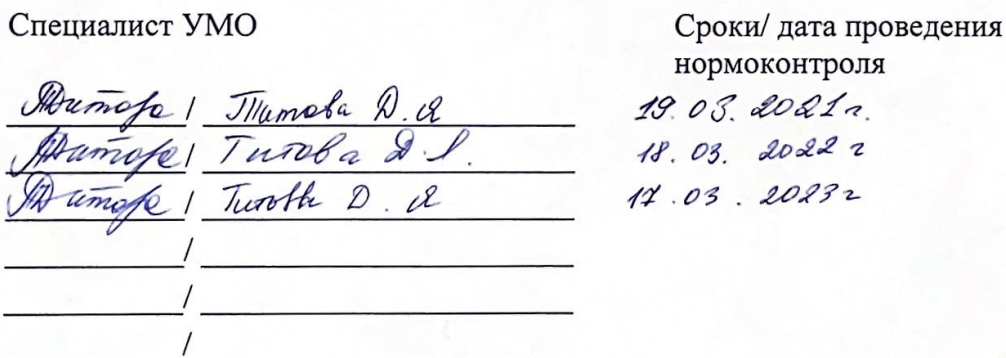 Специалист УМО Сроки/ дата проведения
нормоконтроля
Титова / Титова Д. Я 19. 03. 2021 г.
Титова / Титова Д. Я. 18. 03. 2022 г
Титова / Титова Д. Я 17. 03. 2023 г
/
/
/